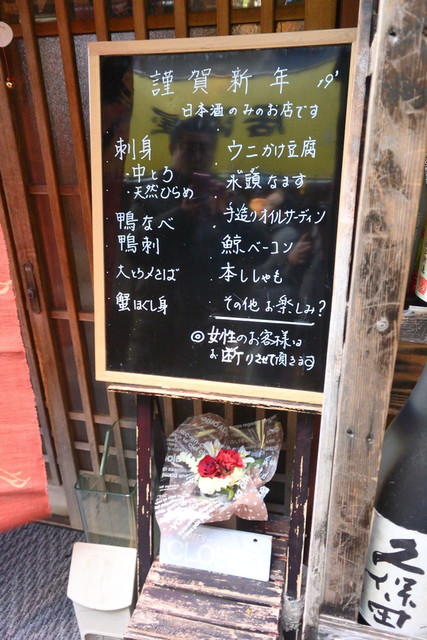 謹賀新年 19'
日本酒のみのお店です
刺身
・中とろ
・天然ひらめ
鴨なべ
鴨刺
大とろメさば
蟹ほぐし身
ウニかけ豆腐
氷頭なます
手造りオイルサーディン
鯨ベーコン
本ししゃも
その他お楽しみ?
◎女性のお客様は
お断りさせて頂きます
CLOSE
久保田